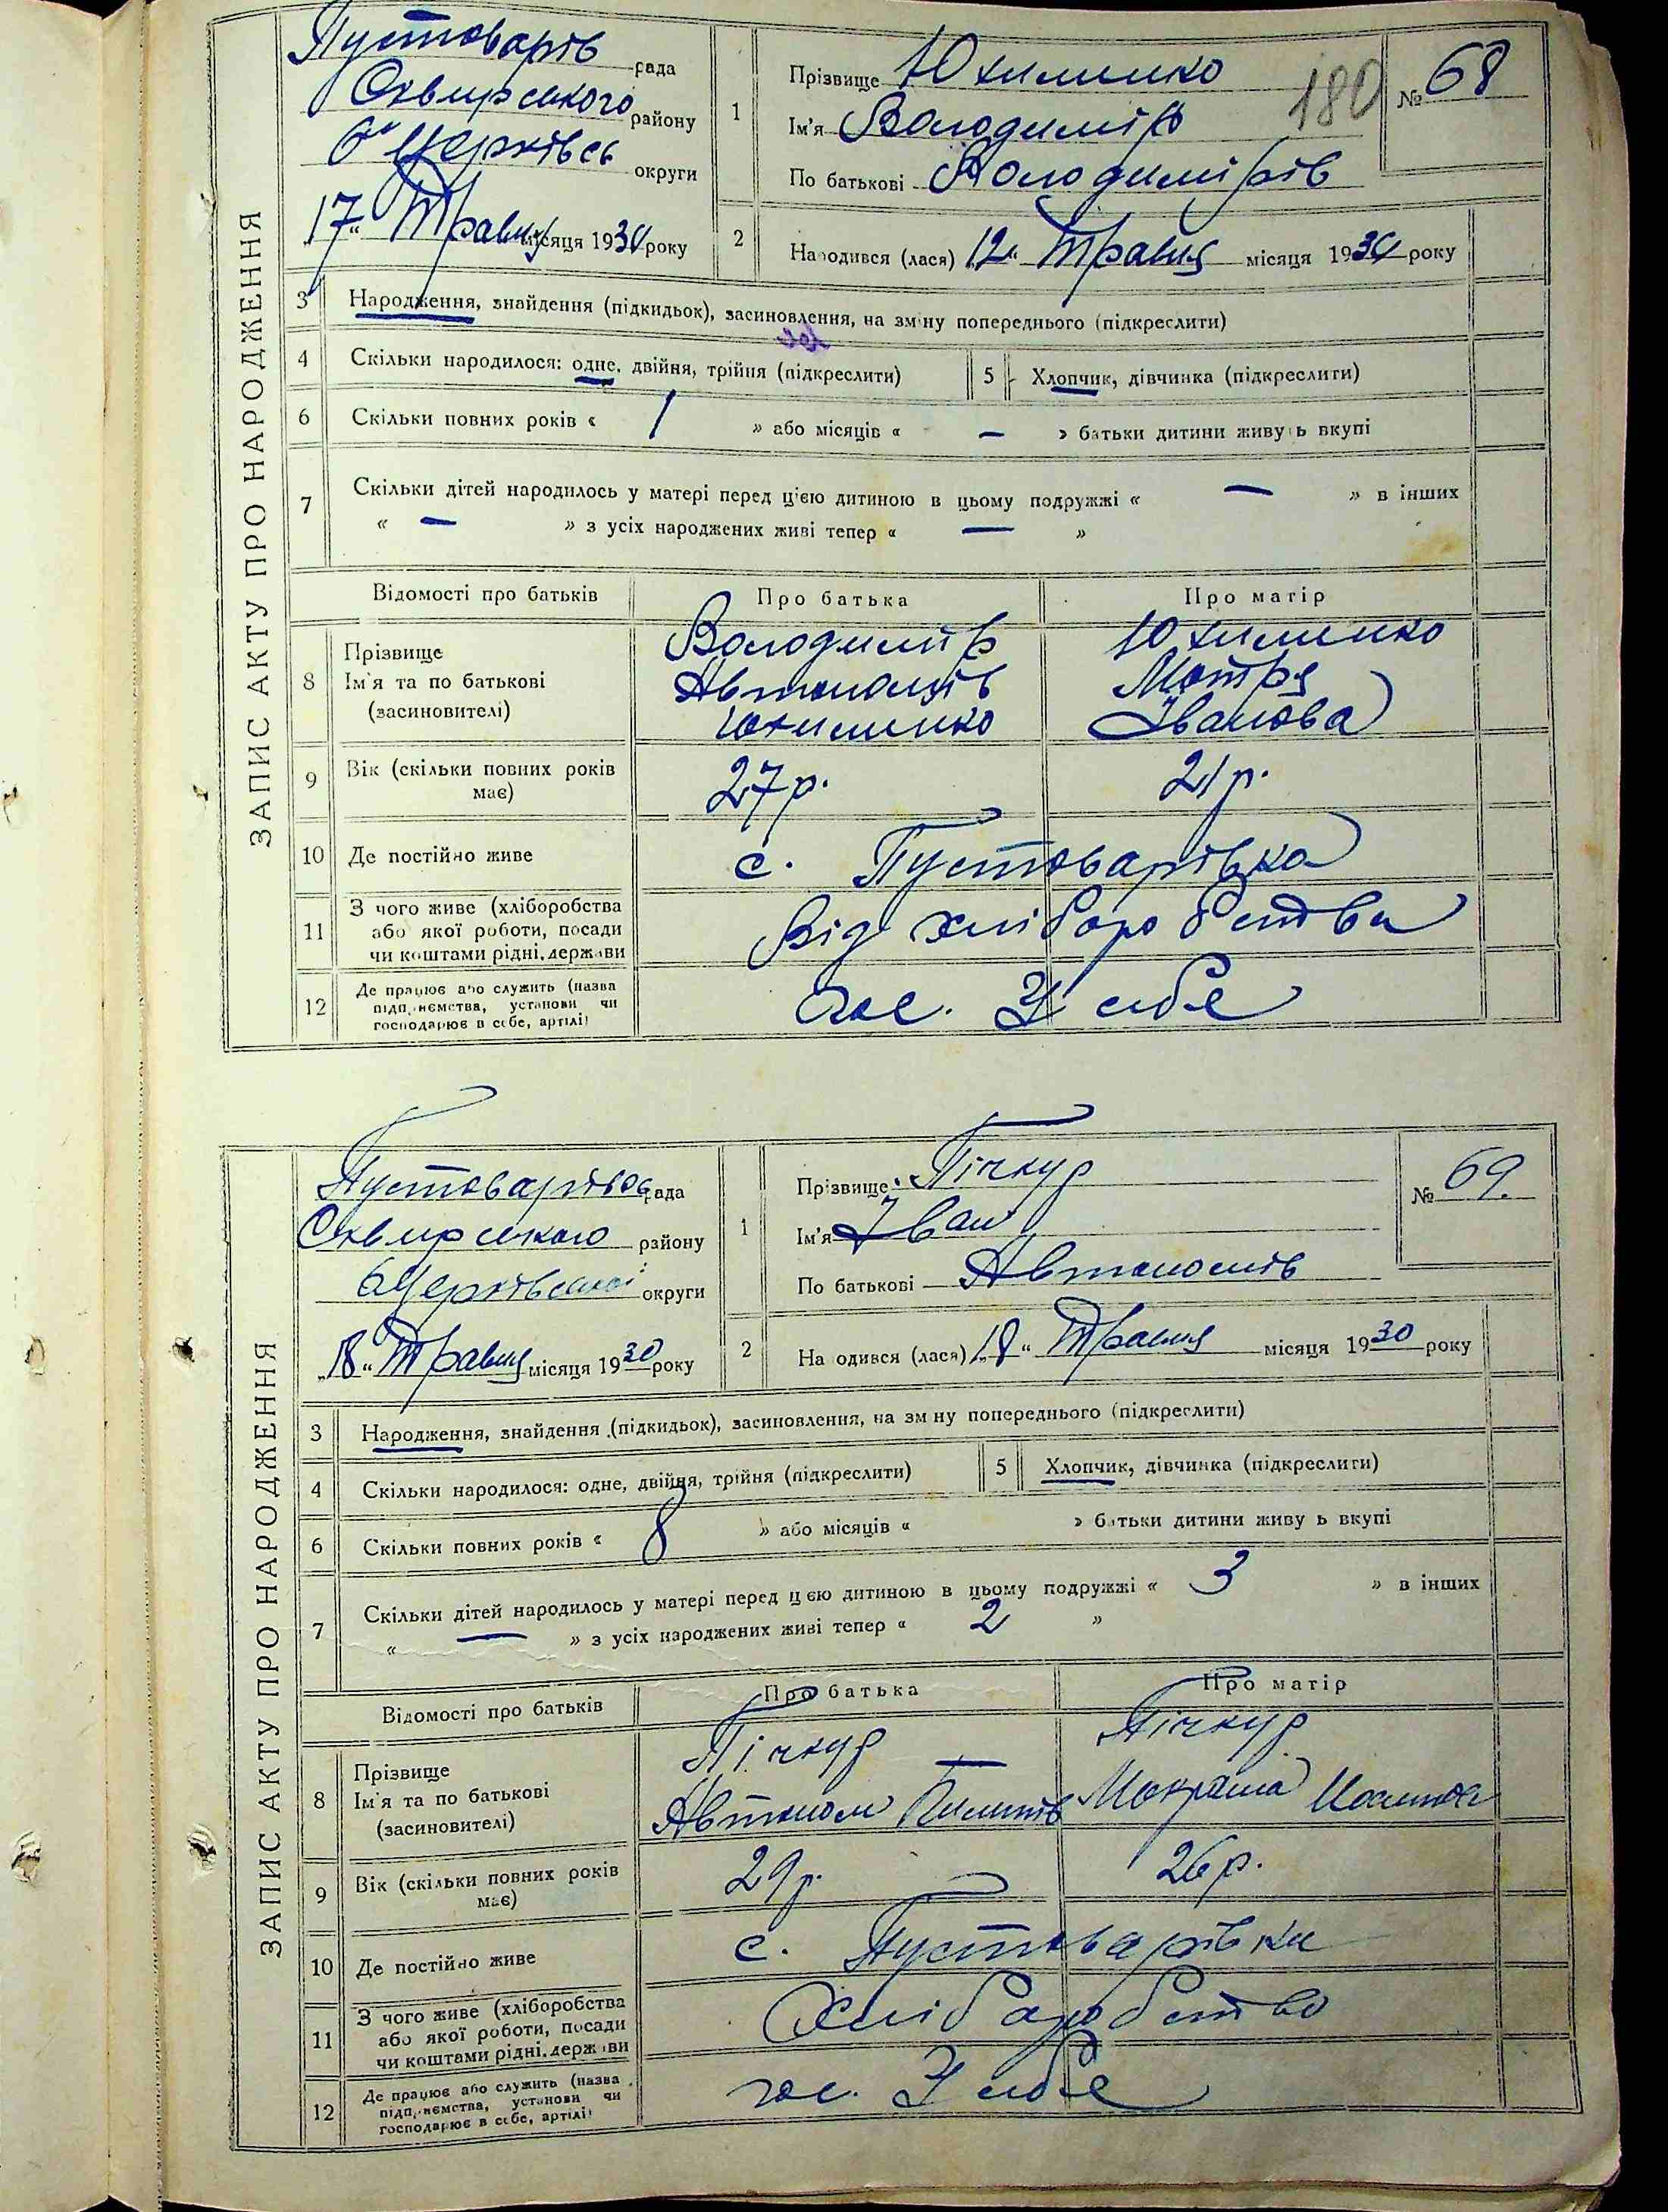 ЗАПИС АКТУ ПРО НАРОДЖЕННЯ
Пустоварів рада
Сквирського району
б Церківсь округи
"17" Травня місяця 1930 року
1 Прізвище Юхименко
Ім'я Володимір
По батькові Володимірів
180
№ 68
2 Народився (лася) "12" Травня місяця 1930 року
3 Народження, знайдення (підкидьок), засиновлення, на зміну попереднього (підкреслити)
4 Скільки народилося: одне, двійня, трійня (підкреслити) 5 Хлопчик, дівчинка (підкреслити)
6 Скільки повних років « 1 » або місяців « — » батьки дитини живуть вкупі
7 Скільки дітей народилось у матері перед цією дитиною в цьому подружжі « — » в інших
« — » з усіх народжених живі тепер « — »
Відомості про батьків Про батька Про матір
8 Прізвище Ім'я та по батькові (засиновителі)
Володимір Автономів Юхименко
Юхименко Мотря Іванова
9 Вік (скільки повних років має) 27 р. 21 р.
10 Де постійно живе с. Пустоварівка
11 З чого живе (хліборобства або якої роботи, посади чи коштами рідні, держави Від хліборобства
12 Де працює або служить (назва підприємства, установи чи господарює в себе, артілі) гос. У себе
ЗАПИС АКТУ ПРО НАРОДЖЕННЯ
Пустоварівсь рада
Сквирського району
б Церківської округи
"18" Травня місяця 1930 року
1 Прізвище Пічкур
Ім'я Іван
По батькові Автономів
№ 69.
2 На одився (лася) "18" Травня місяця 1930 року
3 Народження, знайдення (підкидьок), засиновлення, на зм ну попереднього (підкреслити)
4 Скільки народилося: одне, двійня, трійня (підкреслити) 5 Хлопчик, дівчинка (підкреслити)
6 Скільки повних років « 8 » або місяців « » батьки дитини живу ь вкупі
7 Скільки дітей народилось у матері перед цією дитиною в цьому подружжі « 3 » в інших
« — » з усіх народжених живі тепер « 2 »
Відомості про батьків Про батька Про матір
8 Прізвище Ім'я та по батькові (засиновителі)
Пічкур Автоном Пилипів
Пічкур
9 Вік (скільки повних років має) 29 р. 26 р.
10 Де постійно живе с. Пустоварівки
11 З чого живе (хліборобства або якої роботи, посади чи коштами рідні, держави Хліборобство
12 Де працює або служить (назва підприємства, установи чи господарює в себе, артілі) гос. У себе